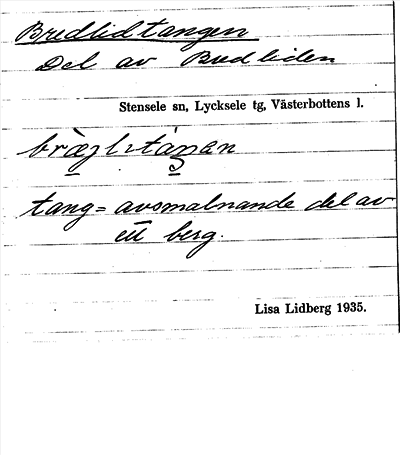 Bredlidtangen
Del av Bredliden
Stensele sn, Lycksele tg, Västerbottens l.
tang = avsmalnande del av
ett berg.
Lisa Lidberg 1935.